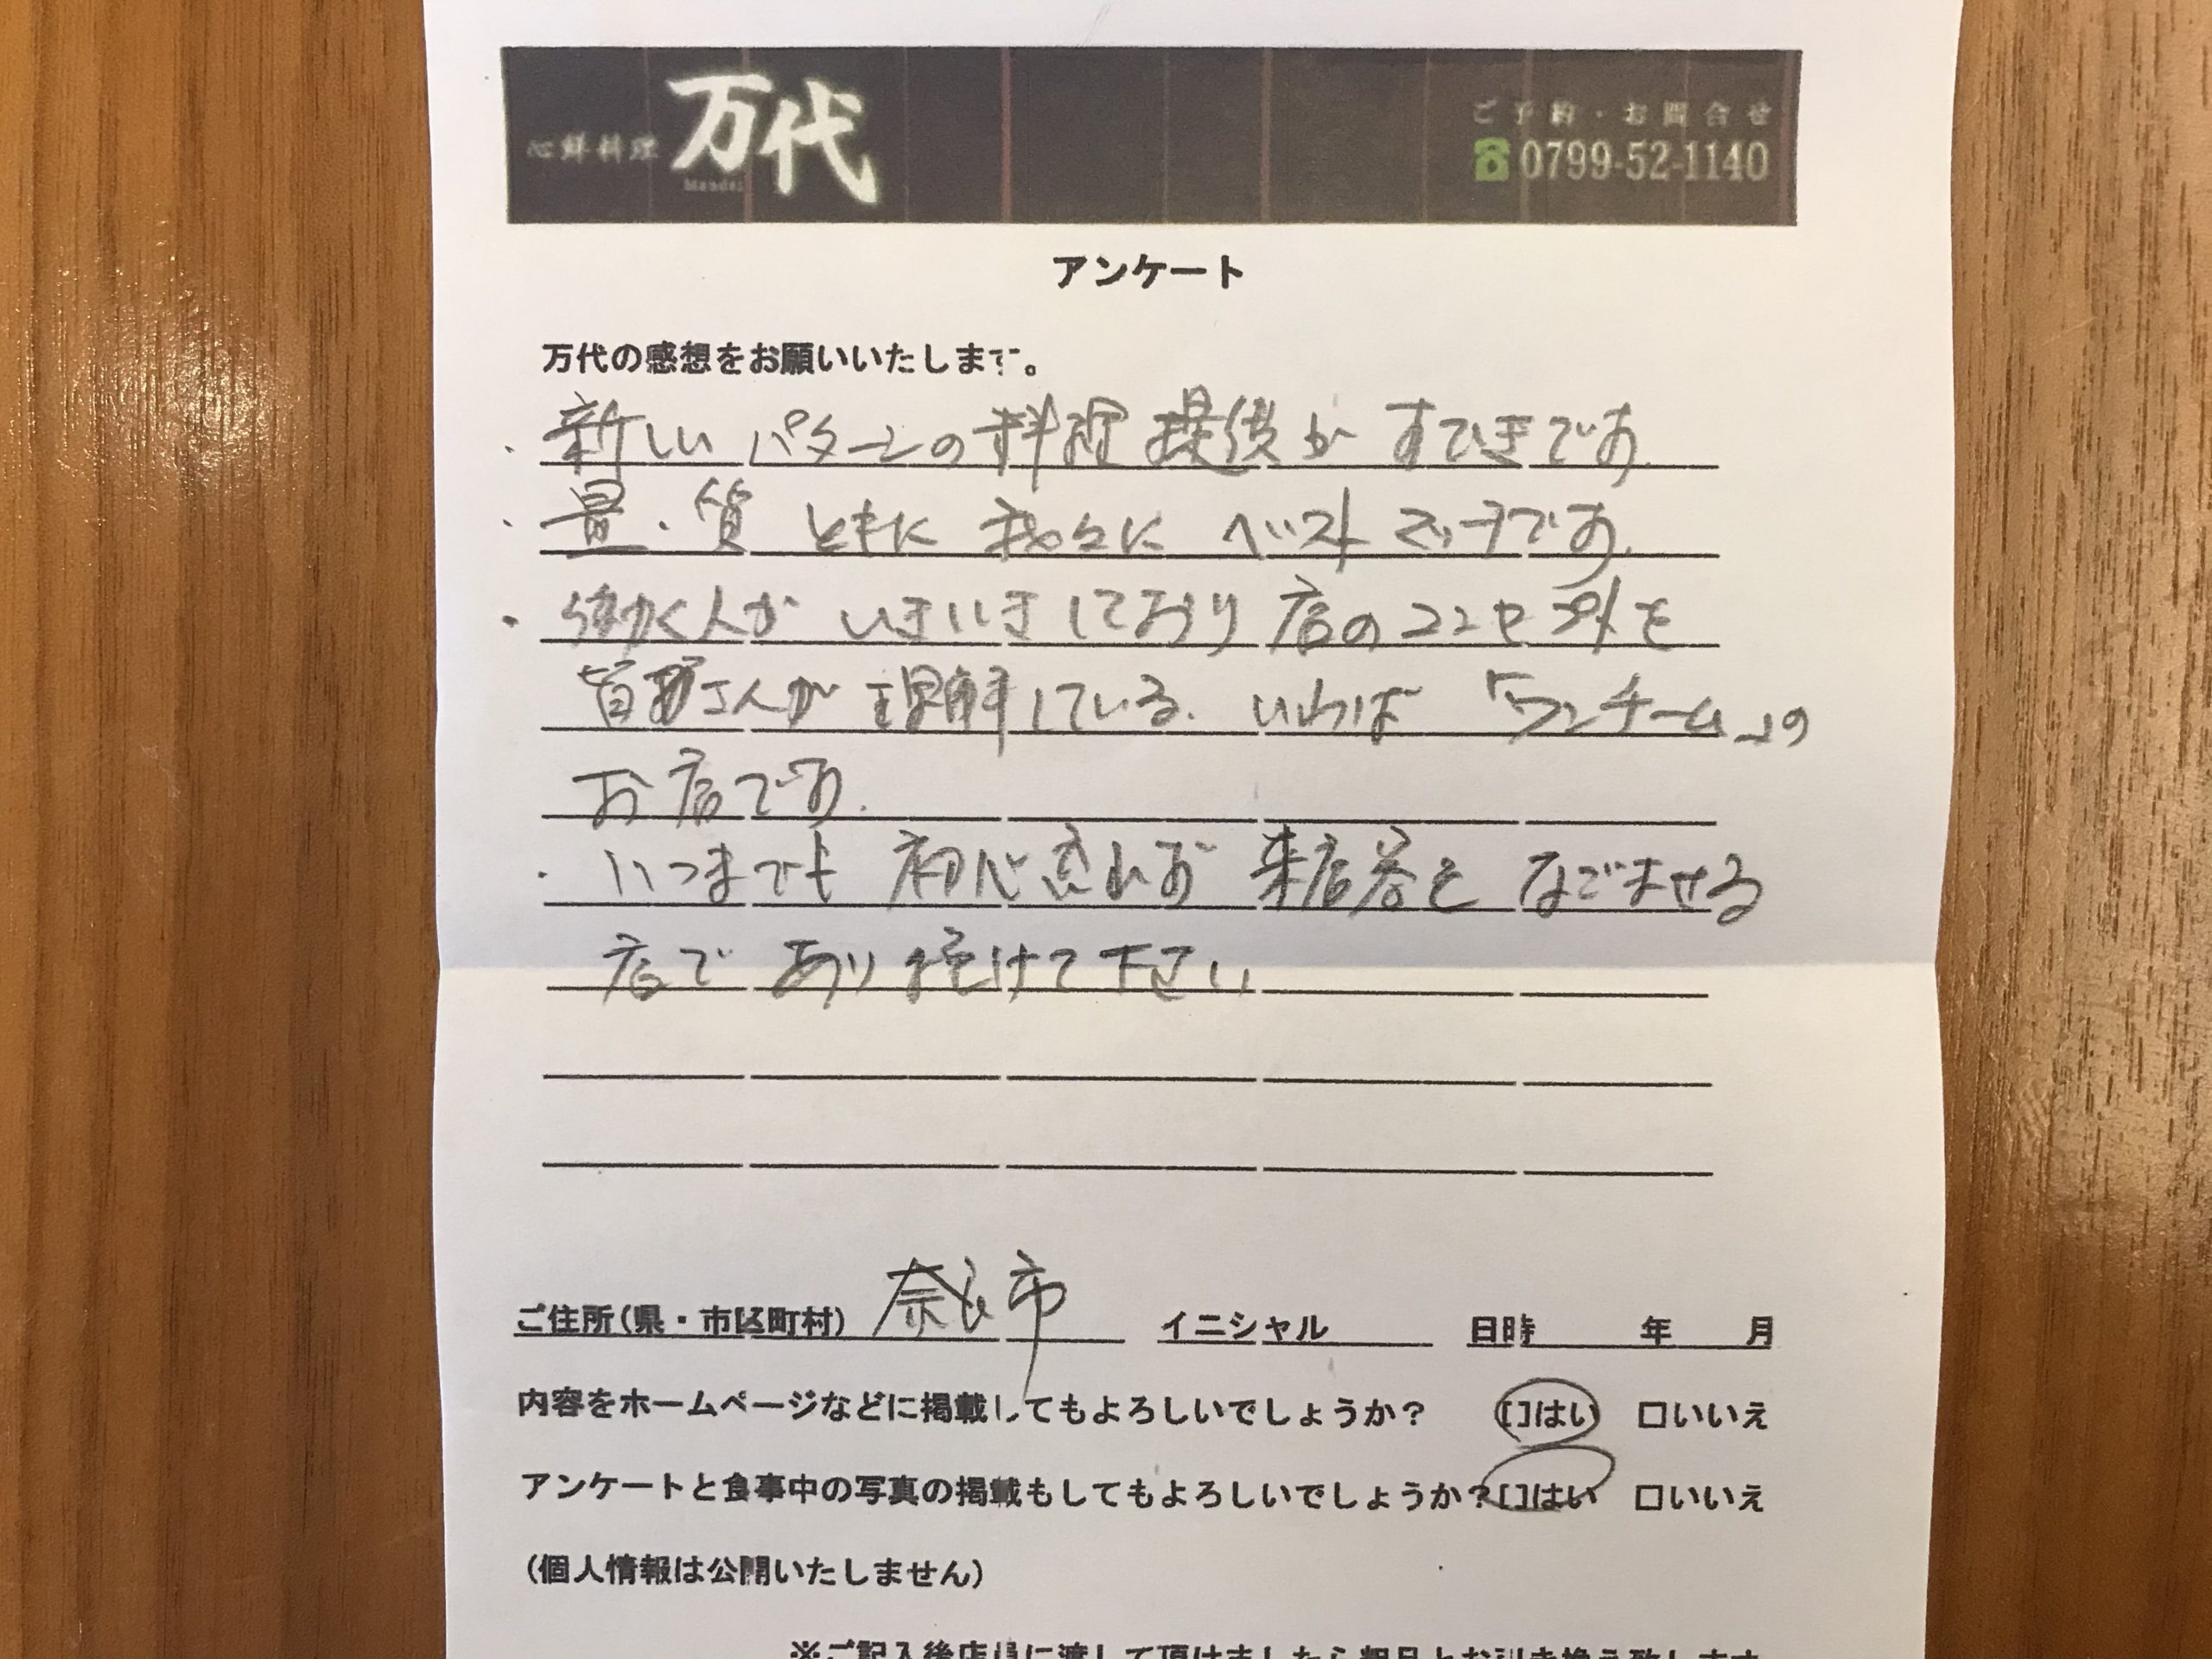 心鮮料理 万代
Mandai
ご予約・お問合せ
0799-52-1140
アンケート
万代の感想をお願いいたします。
・新しいパターンの料理提供がすてきです。
・量・質ともに我々にベストマッチです。
・働く人がいきいきしており店のコンセプトを
皆さんが理解している。いわば「ワンチーム」の
お店です。
・いつまでも初心忘れず来店客をなごませる
店であり続けて下さい
ご住所(県・市区町村) 奈良市 イニシャル 日時 年 月
内容をホームページなどに掲載してもよろしいでしょうか? □はい □いいえ
アンケートと食事中の写真の掲載もしてもよろしいでしょうか?□はい □いいえ
(個人情報は公開いたしません)
※ご記入後店員に渡して頂けましたら粗品とお引き換え致します